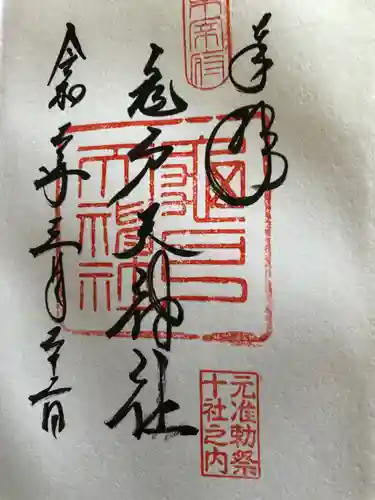 奉拝
亀戸天神社
令和二年三月二十二日
元准勅祭
十社之内